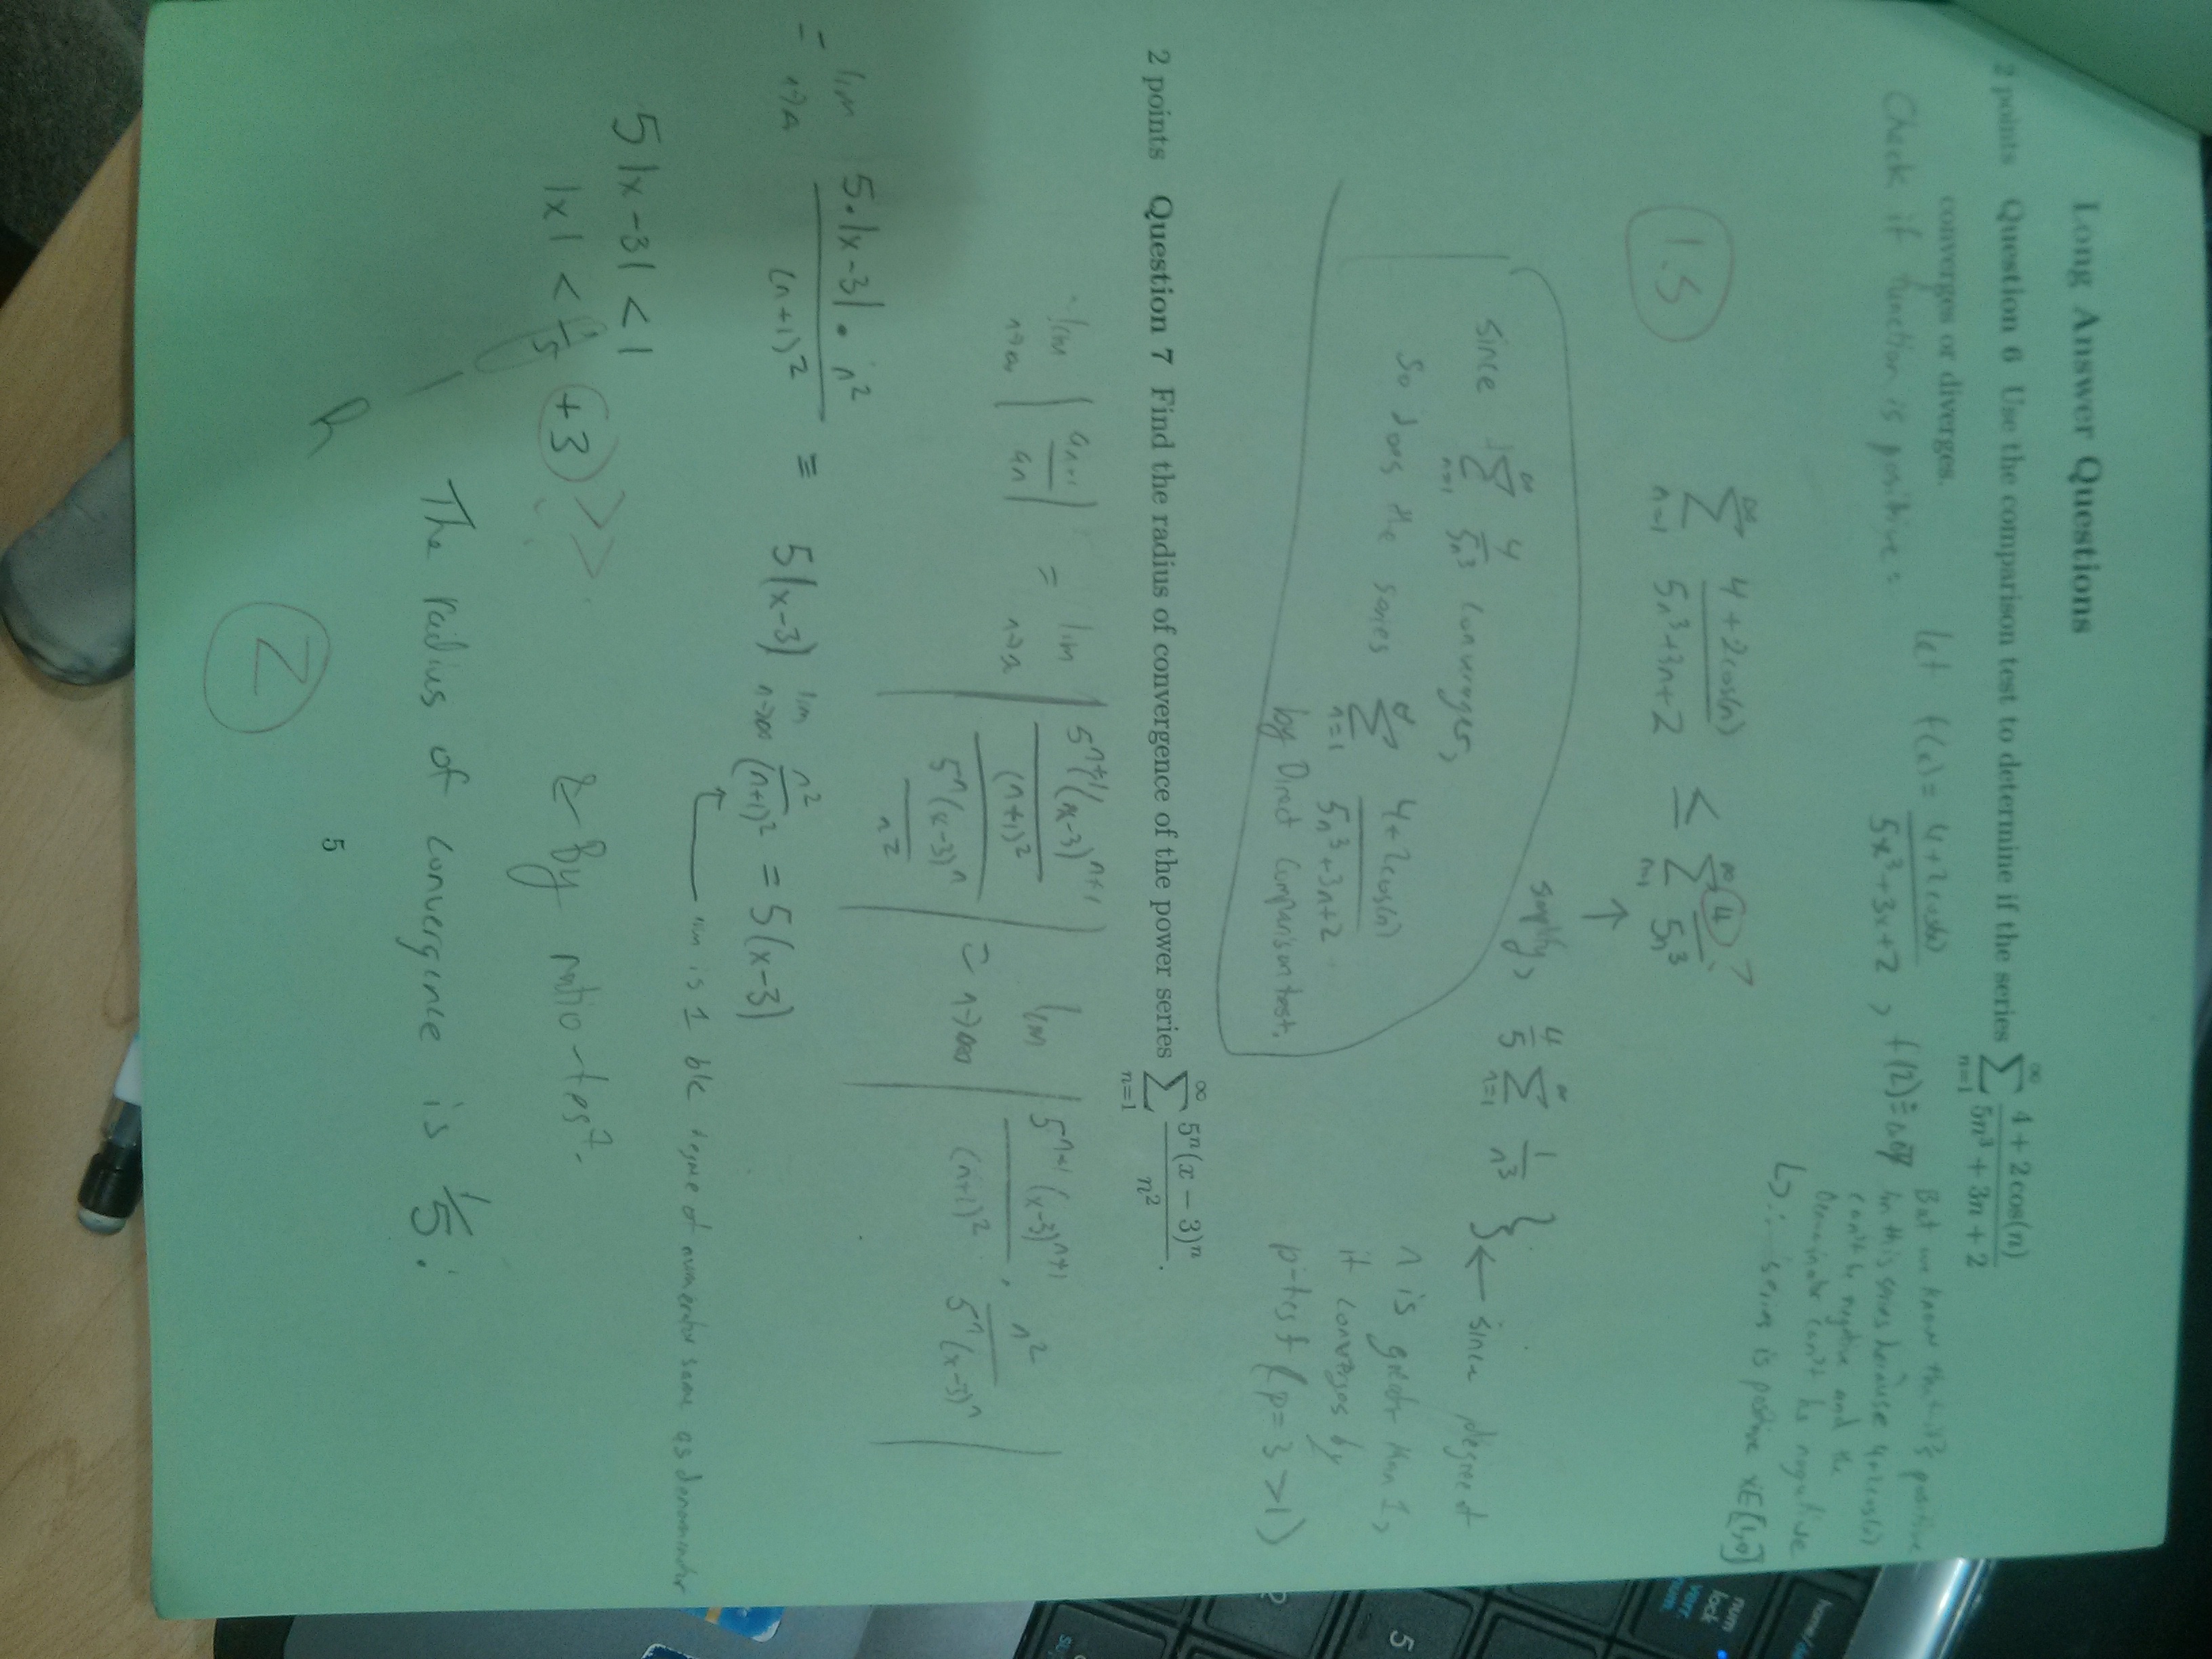 Long Answer Questions
2 points Question 6 Use the comparison test to determine if the series ∑_{n=1}^{∞} (4 + 2cos(n))/(5n³ + 3n + 2)
converges or diverges.
Check if function is positive:
let f(x) = (4+2cos(x))/(5x³+3x+2), f(2) =
But we know that it's positive
in this series because 4+2cos(x)
can't be negative and the
Denominator can't be negative
↳ ∴ series is positive xE[1,∞]
∑_{n=1}^{∞} (4+2cos(n))/(5n³+3n+2) ≤ ∑_{n=1}^{∞} 4/5n³ ?
1.5
↑
simplify, 4/5 ∑_{n=1}^{∞} 1/n³ } ← since degree of
n is greater than 1,
it converges by
p-test (p=3>1)
Since ∑_{n=1}^{∞} 4/5n³ converges,
So does the series ∑_{n=1}^{∞} (4+2cos(n))/(5n³+3n+2)
by Direct Comparison test.
2 points Question 7 Find the radius of convergence of the power series ∑_{n=1}^{∞} 5ⁿ(x − 3)ⁿ/n².
lim_{n→∞} |a_{n+1}/a_n| = lim_{n→∞} |(5ⁿ⁺¹(x-3)ⁿ⁺¹/(n+1)²)/(5ⁿ(x-3)ⁿ/n²)| = lim_{n→∞} |5ⁿ⁺¹(x-3)ⁿ⁺¹/(n+1)² · n²/5ⁿ(x-3)ⁿ|
= lim_{n→∞} 5·|x-3|·n²/(n+1)² = 5|x-3| lim_{n→∞} n²/(n+1)² = 5|x-3|
lim is 1 b/c degree of numerator same as denominator
5|x-3| < 1
|x| < 1/5 + 3
R
& By ratio test.
The radius of convergence is 1/5.
2
5
home/
num
lock
5